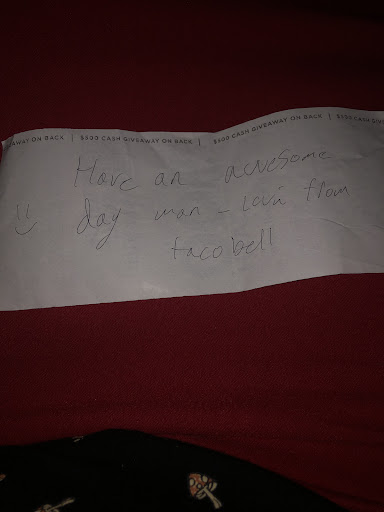 AWAY ON BACK | $500 CASH GIVEAWAY ON BACK | $500 CASH GIVEAWAY ON BACK | $500 CASH GIV
Have an awesome
:) day man - Lovin from
taco bell